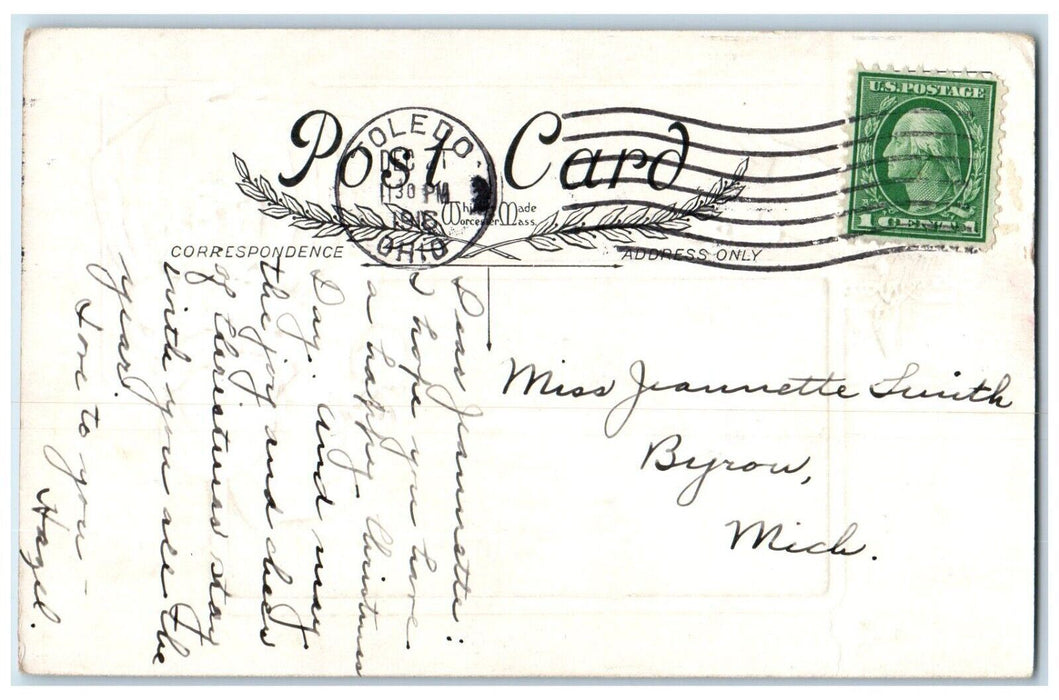 Post Card
TOLEDO.
DEC
30 PM
OHIO
Whitney Made
Worcester Mass
CORRESPONDENCE
ADDRESS ONLY
U.S. POSTAGE
1 CENT 1
Miss Jeannette Smith
Byron,
Mich.
Dear Jeannette:
I hope you have
a happy Christmas
Day. And may
the joy and cheer
of Christmas stay
with you all the
year.
Love to you –
Hazel.